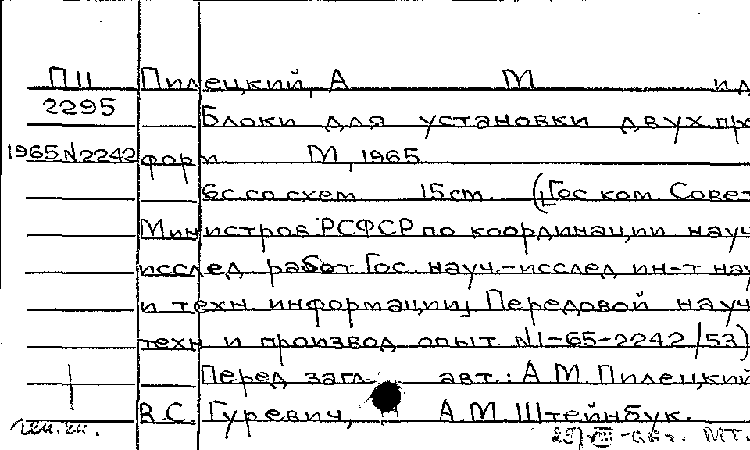 ПII Пилецкий, А М и д
2295 Блоки для установки двух про
1965 N2242 форм М, 1965
6с. со схем 15 см. (Гос ком. Совет
Министров РСФСР по координации науч
исслед работ Гос. науч.-исслед ин-т нау
и техн информации Передовой науч
техн и производ опыт. N1-65-2242/53)
Перед загл. авт.: А.М. Пилецкий
В.С. Гуревич, А.М. Штейнбук.
МТ.